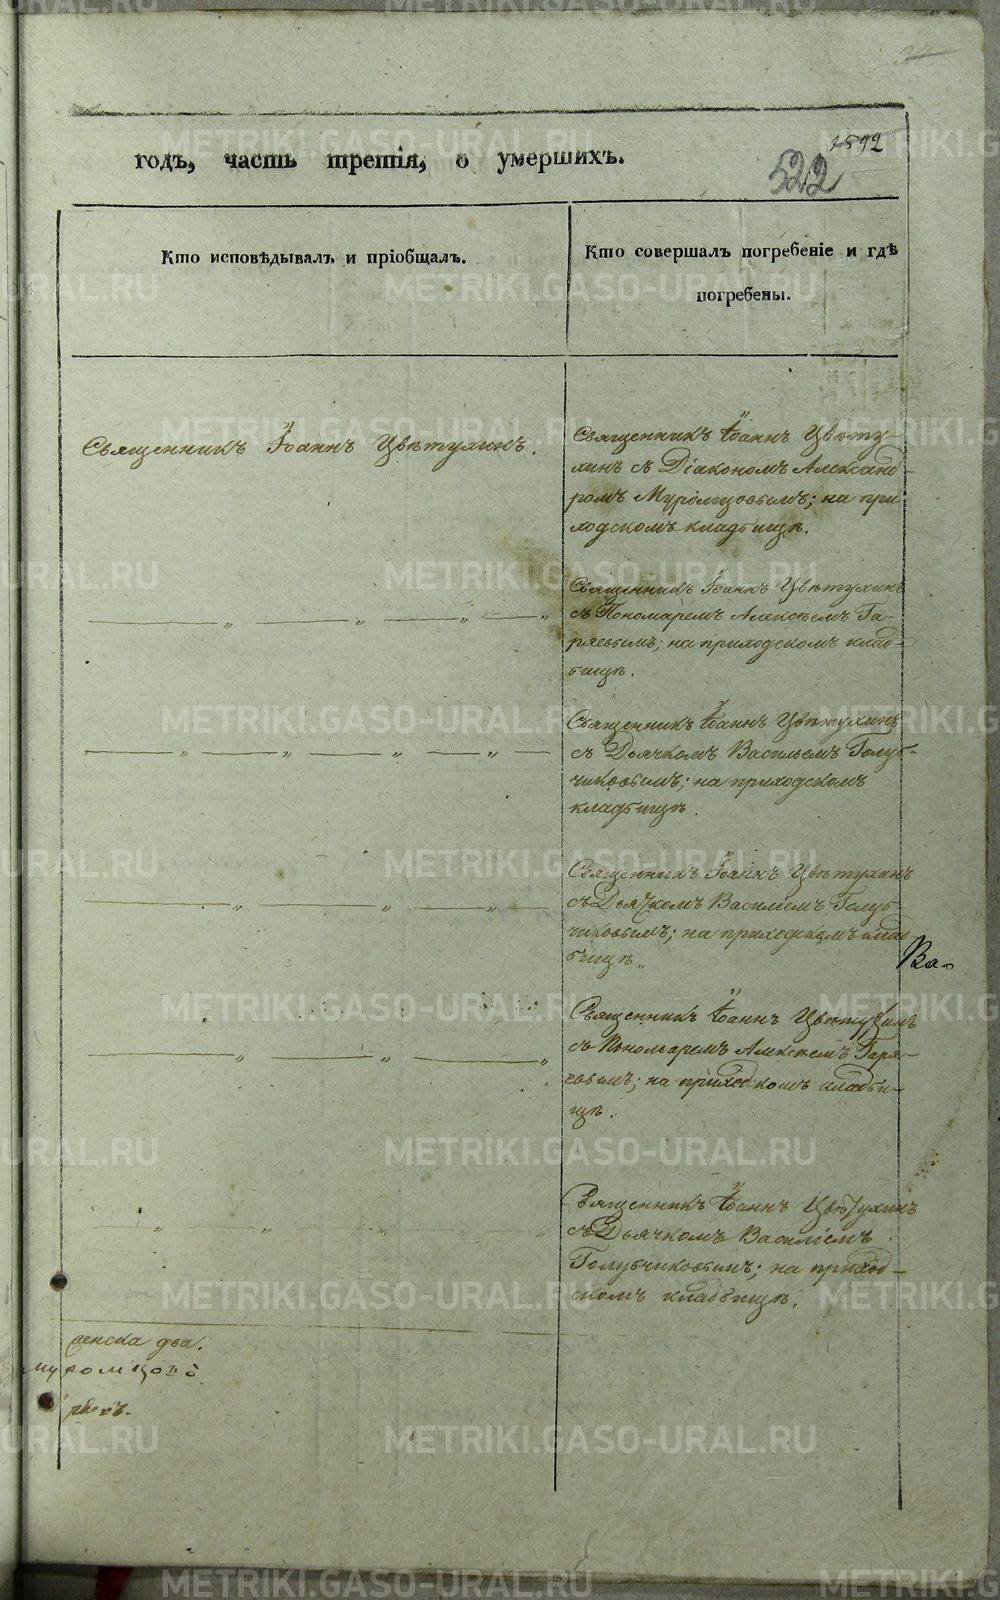 годъ, часть третія, о умершихъ.
522
Кто исповѣдывалъ и пріобщалъ.
Кто совершалъ погребеніе и гдѣ
погребены.
Священникъ Іоаннъ Цвѣтухинъ.
Священникъ Іоаннъ Цвѣту-
хинъ съ Діакономъ Александ-
ромъ Муромцовымъ; на при-
ходскомъ кладбищѣ.
— „ — „ — „ — „
Священникъ Іоаннъ Цвѣтухинъ
съ Пономаремъ Алексѣемъ Га-
ряевымъ; на приходскомъ клад-
бищѣ.
— „ — „ — „ — „ —
Священникъ Іоаннъ Цвѣтухинъ
съ Дьячкомъ Васильемъ Голуб-
чиковымъ; на приходскомъ
кладбищѣ.
— „ — „ — „ —
Священникъ Іоаннъ Цвѣтухинъ
съ Дьячкомъ Василіемъ Голуб-
чиковымъ; на приходскомъ клад-
бищѣ.
Ва-
— „ — „ — „
Священникъ Іоаннъ Цвѣтухинъ
съ Пономаремъ Алексѣемъ Гаря-
евымъ; на приходскомъ кладби-
щѣ.
— „ — „ — „ — „
Священникъ Іоаннъ Цвѣтухинъ
съ Дьячкомъ Василіемъ
Голубчиковымъ; на приход-
скомъ кладбищѣ.
женска два.
муромцовъ
METRIKI.GASO-URAL.RU